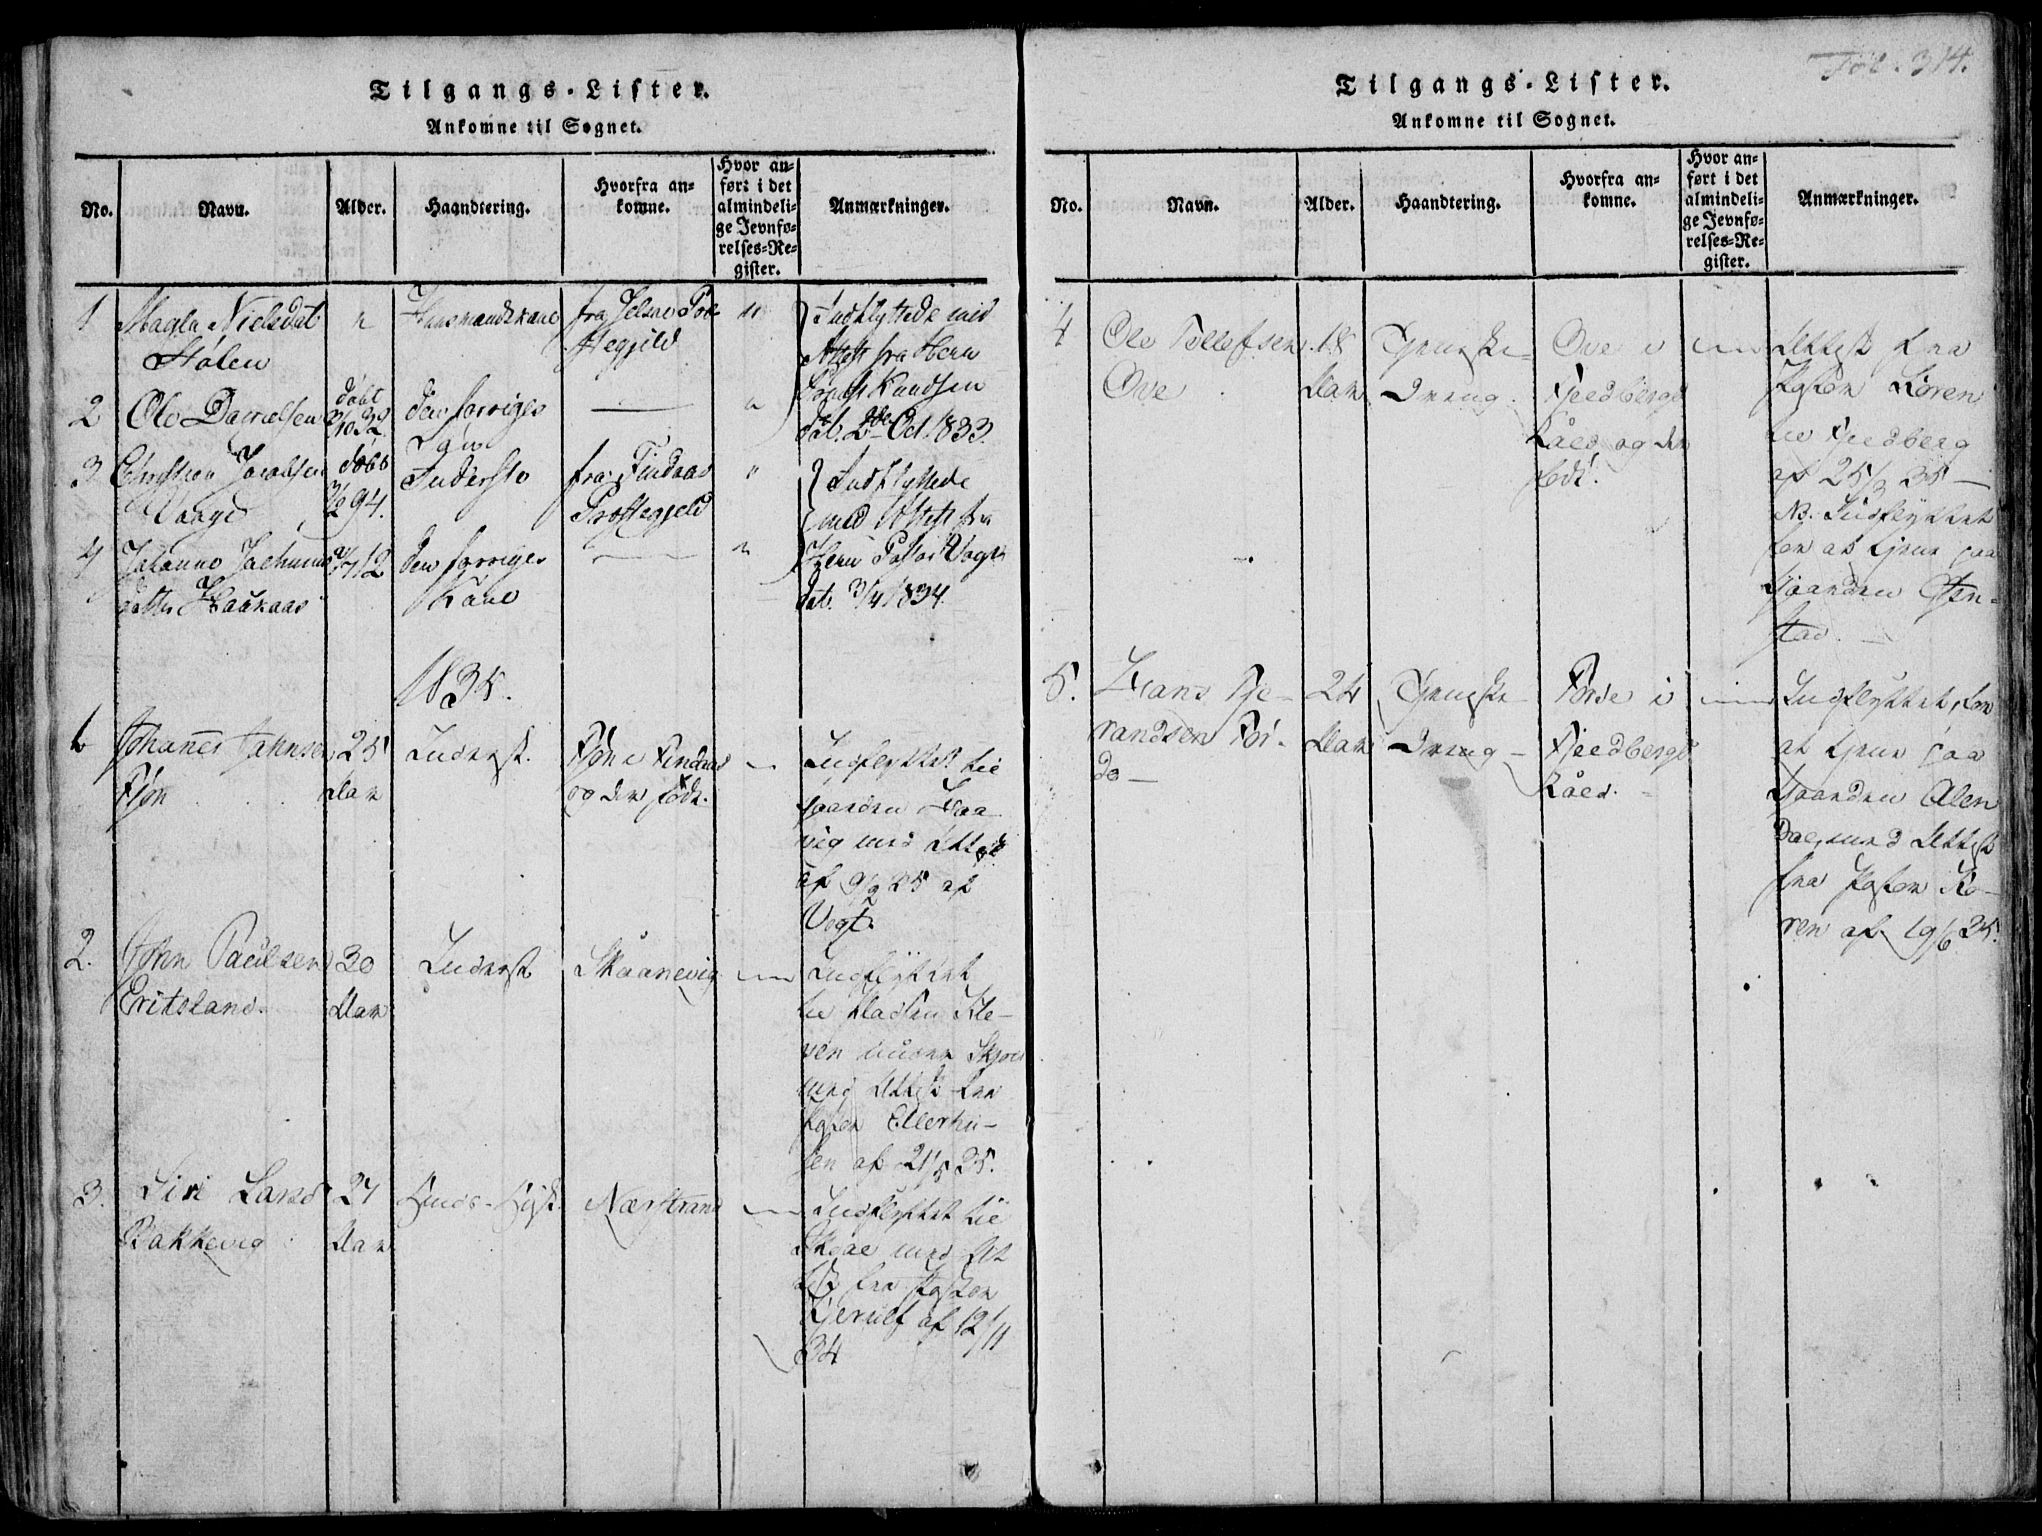 Fol. 314.
Tilgangs-Lister.
Ankomne til Sognet.
No.
Navn.
Alder.
Haandtering.
Hvorfra an-
komne.
Hvor an-
ført i det
almindeli-
ge Jevnfø-
relses-Re-
gister.
Anmærkninger.
1
Nielsdat
Hølen
"
Huusmandskone
fra Jelsøe
"
Indflyttede med
Attest fra Herr
Knudsen
dat. 2de Oct. 1833.
2
Ole Danielsen
døbt
den forriges
"
3
Vaage
døbt
94.
Inderste
fra Findaas
Præstegjeld
"
Indflyttede
med Attest fra
Herr Pastor Vogt
dat. 3/4 1834.
4
Johanne Jochums
datter Haukaas
12
den forriges
Kone
"
1835.
1
Johannes Johnsen
Fjøn
25
Aar
Inderst.
Fjøn i Findaas
og der født.
Indflyttet til
Gaarden Haa
vig med Attest
af 9/2 35 af
Vogt.
2.
John Paulsen
Eritsland.
30
Aar
Inderst
Skaanevig
Indflyttet
til Pladsen Kle-
ven under
med Attest fra
Pastor Ellerhu-
sen af 21/5 35.
3.
Siri Larsd
Bakkevig
27
Aar
Nærstrand
Indflyttet til
med At
test fra Pastor
Kjerulf af 12/11
34
Tilgangs-Lister.
Ankomne til Sognet.
No.
Navn.
Alder.
Haandtering.
Hvorfra an-
komne.
Hvor an-
ført i det
almindeli-
ge Jevnfø-
relses-Re-
gister.
Anmærkninger.
4
Ole Tollefsen
Ove
18
Aar
Tjeneste-
Dreng.
Ove i
Fjeldbergs
og der
født.
Attest fra
Pastor Koren
til Fjeldberg
af 25/3 35 —
NB. Indflyttet
for at tjene paa
Gaarden
5.
Hans Tje-
randsen För-
de —
24
Aar
Tjeneste
Dreng —
Førde i
Fjeldbergs
Indflyttet, for
at tjene paa
Gaarden Ølen
Dal, med Attest
fra Pastor Ko-
ren af 19/6 35.